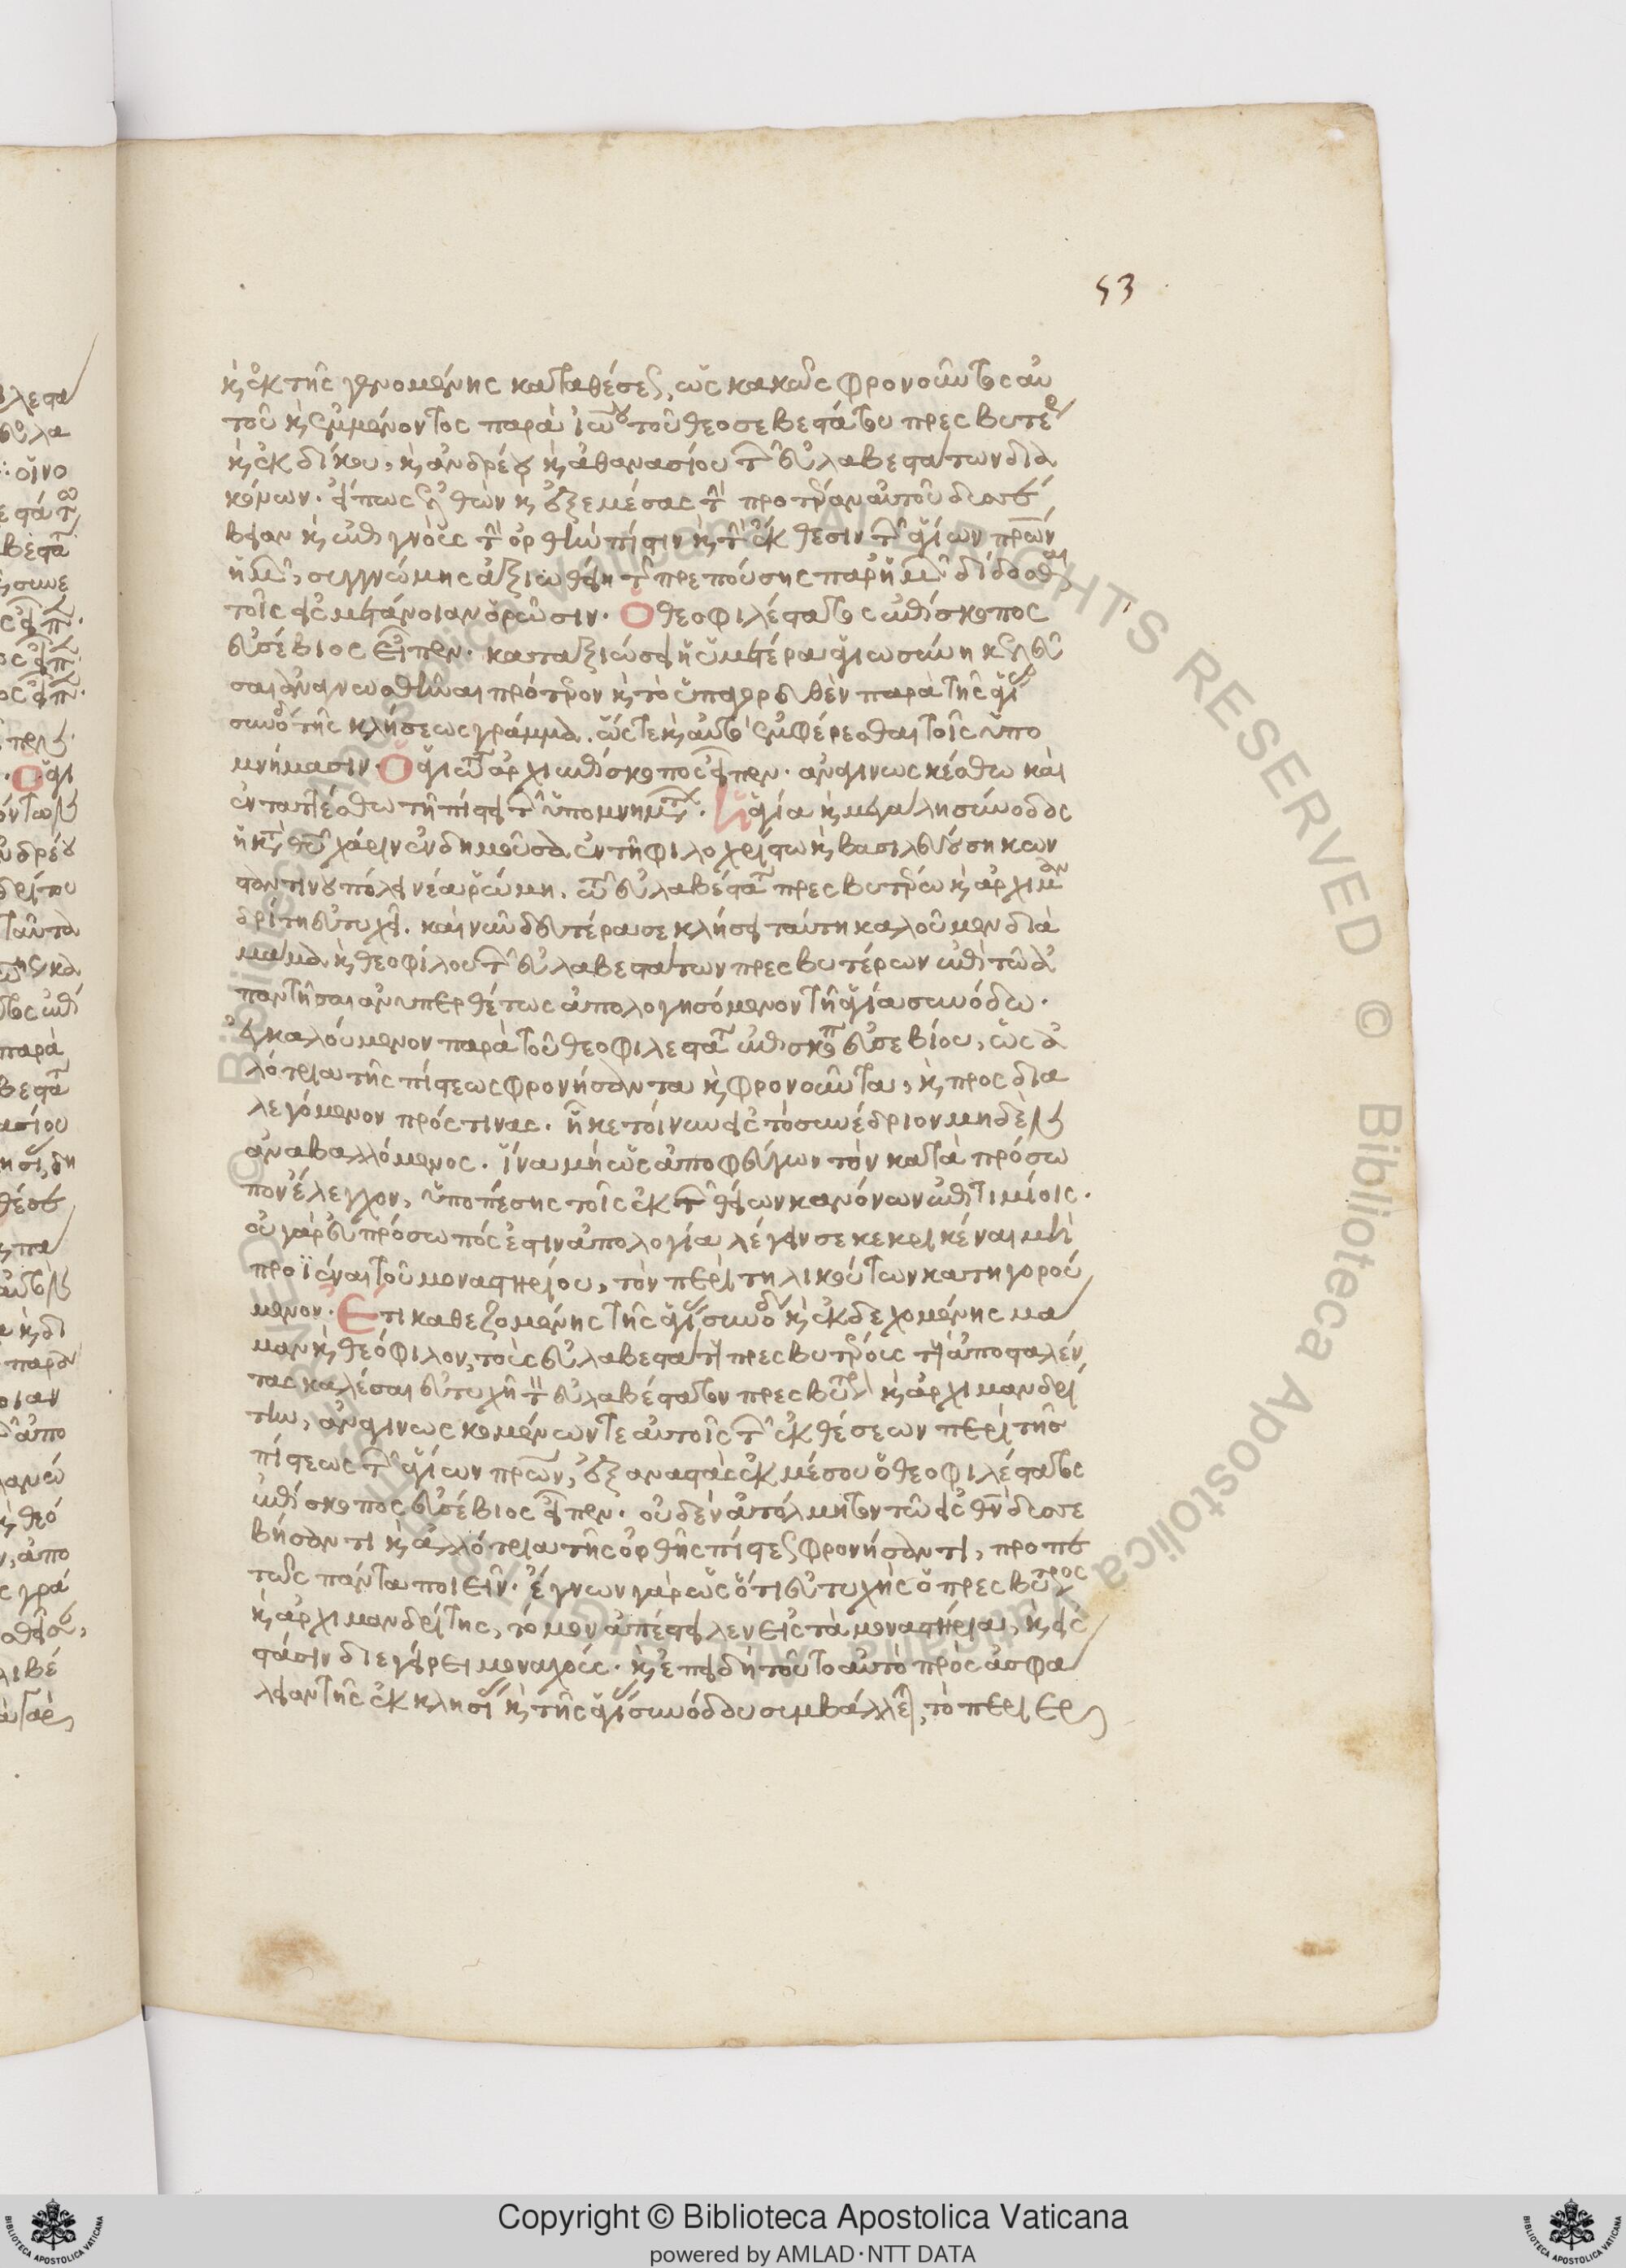 53
κ(αὶ) ἐκ τῆς γενομένης καταθέσεως, ὡς κακῶς φρονοῦντος αὐ
τοῦ κ(αὶ) ἐμμένοντος παρὰ ἰω(άνν)ου τοῦ θεοσεβεστάτου πρεσβυτέρου
κ(αὶ) ἐκδίκου, κ(αὶ) ἀνδρέου κ(αὶ) ἀθανασίου τῶν εὐλαβεστάτων δια
κόνων. εἴπως ἐλθὼν κ(αὶ) ἐξεμέσας τὴν προτέραν αὐτοῦ δυσσέ
βειαν κ(αὶ) ἐπιγνοὺς τὴν ὀρθὴν πίστιν κ(αὶ) τὴν ἔκθεσιν τῶν ἁγίων πρων
ἡμῶν, συγγνώμης ἀξιωθείη τῆς πρεπούσης παρ' ἡμῶν δίδοσθαι
τοῖς εἰς μετάνοιαν ὁρῶσιν. Ὁ θεοφιλέστατος ἐπίσκοπος
εὐσέβιος εἶπεν. καταξιώσει ἡ ὑμετέρα ἁγιωσύνη κελεῦ
σαι ἀναγνωσθῆναι πρότερον κ(αὶ) τὸ ὑπαγορευθὲν παρὰ τῆς ἁγίας
συνόδου τῆς κλήσεως γράμμα. ὥστε κ(αὶ) αὐτὸ ἐμφέρεσθαι τοῖς ὑπο
μνήμασιν. Ὁ ἁγιώτατος ἀρχιεπίσκοπος εἶπεν. ἀναγινωσκέσθω καὶ
ἐνταττέσθω τῇ πίστει τῶν ὑπομνημάτων. Ἡ ἁγία κ(αὶ) μεγάλη σύνοδος
ἡ κατὰ θεοῦ χάριν ἐνδημοῦσα ἐν τῇ φιλοχρίστω κ(αὶ) βασιλευούση κων
σταντινουπόλει νέα ῥώμη. τῶ εὐλαβεστάτω πρεσβυτέρω κ(αὶ) ἀρχιμαν
δρίτη εὐτυχεῖ. καὶ νῦν δευτέρα σε κλήσει ταύτη καλοῦμεν διὰ
μάμα κ(αὶ) θεοφίλου τῶν εὐλαβεστάτων πρεσβυτέρων ἐπὶ τῶ ἀ
παντῆσαι ἀνυπερθέτως ἀπολογησόμενον τῇ ἁγία συνόδω.
ἐγκαλούμενον παρὰ τοῦ θεοφιλεστάτου ἐπισκόπου εὐσεβίου, ὡς ἀ
λότρια τῆς πίστεως φρονήσαντα κ(αὶ) φρονοῦντα, κ(αὶ) προσδια
λεγόμενον πρός τινας. ἧκε τοίνυν εἰς τὸ συνέδριον μηδὲν
ἀναβαλλόμενος. ἵνα μὴ ὡς ἀποφεύγων τὸν κατὰ πρόσω
πον ἔλεγχον, ὑποπέσης τοῖς ἐκ τῶν θείων κανόνων ἐπιτιμίοις.
οὐ γὰρ εὐπρόσωπός ἐστιν ἀπολογία λέγειν σε κεκρικέναι μὴ
προϊέναι τοῦ μοναστηρίου, τὸν περὶ τηλικούτων κατηγορού
μενον. Ἔτι καθεζομένης τῆς ἁγίας συνόδου κ(αὶ) ἐκδεχομένης μά
μαν κ(αὶ) θεόφιλον, τοὺς εὐλαβεστάτους πρεσβυτέρους τοὺς ἀποσταλέν
τας καλέσαι εὐτυχῆ τὸν εὐλαβέστατον πρεσβύτερον κ(αὶ) ἀρχιμανδρί
την, ἀναγινωσκομένων τε αὐτοῖς τῶν ἐκθέσεων περὶ τῆς
πίστεως τῶν ἁγίων πρων, ἐξαναστὰς ἐκ μέσου ὁ θεοφιλέστατος
ἐπίσκοπος εὐσέβιος εἶπεν. οὐδὲν ἀτόλμητον τῶ εἰς θν δυσσε
βήσαντι κ(αὶ) ἀλλότρια τῆς ὀρθῆς πίστεως φρονήσαντι, προπε
τῶς πάντα ποιεῖν. ἔγνων γὰρ ὡς ὅτι εὐτυχὴς ὁ πρεσβύτερος
κ(αὶ) ἀρχιμανδρίτης, τόμον ἀπέστειλεν εἰς τὰ μοναστήρια, κ(αὶ) εἰς
στάσιν διεγείρει μοναχούς. κ(αὶ) ἐπειδὴ τοῦτο αὐτὸ πρὸς ἀσφά
λειαν τῆς ἐκκλησίας κ(αὶ) τῆς ἁγίας συνόδου συμβάλλεται, τὸ περιερ
Copyright © Biblioteca Apostolica Vaticana
powered by AMLAD·NTT DATA